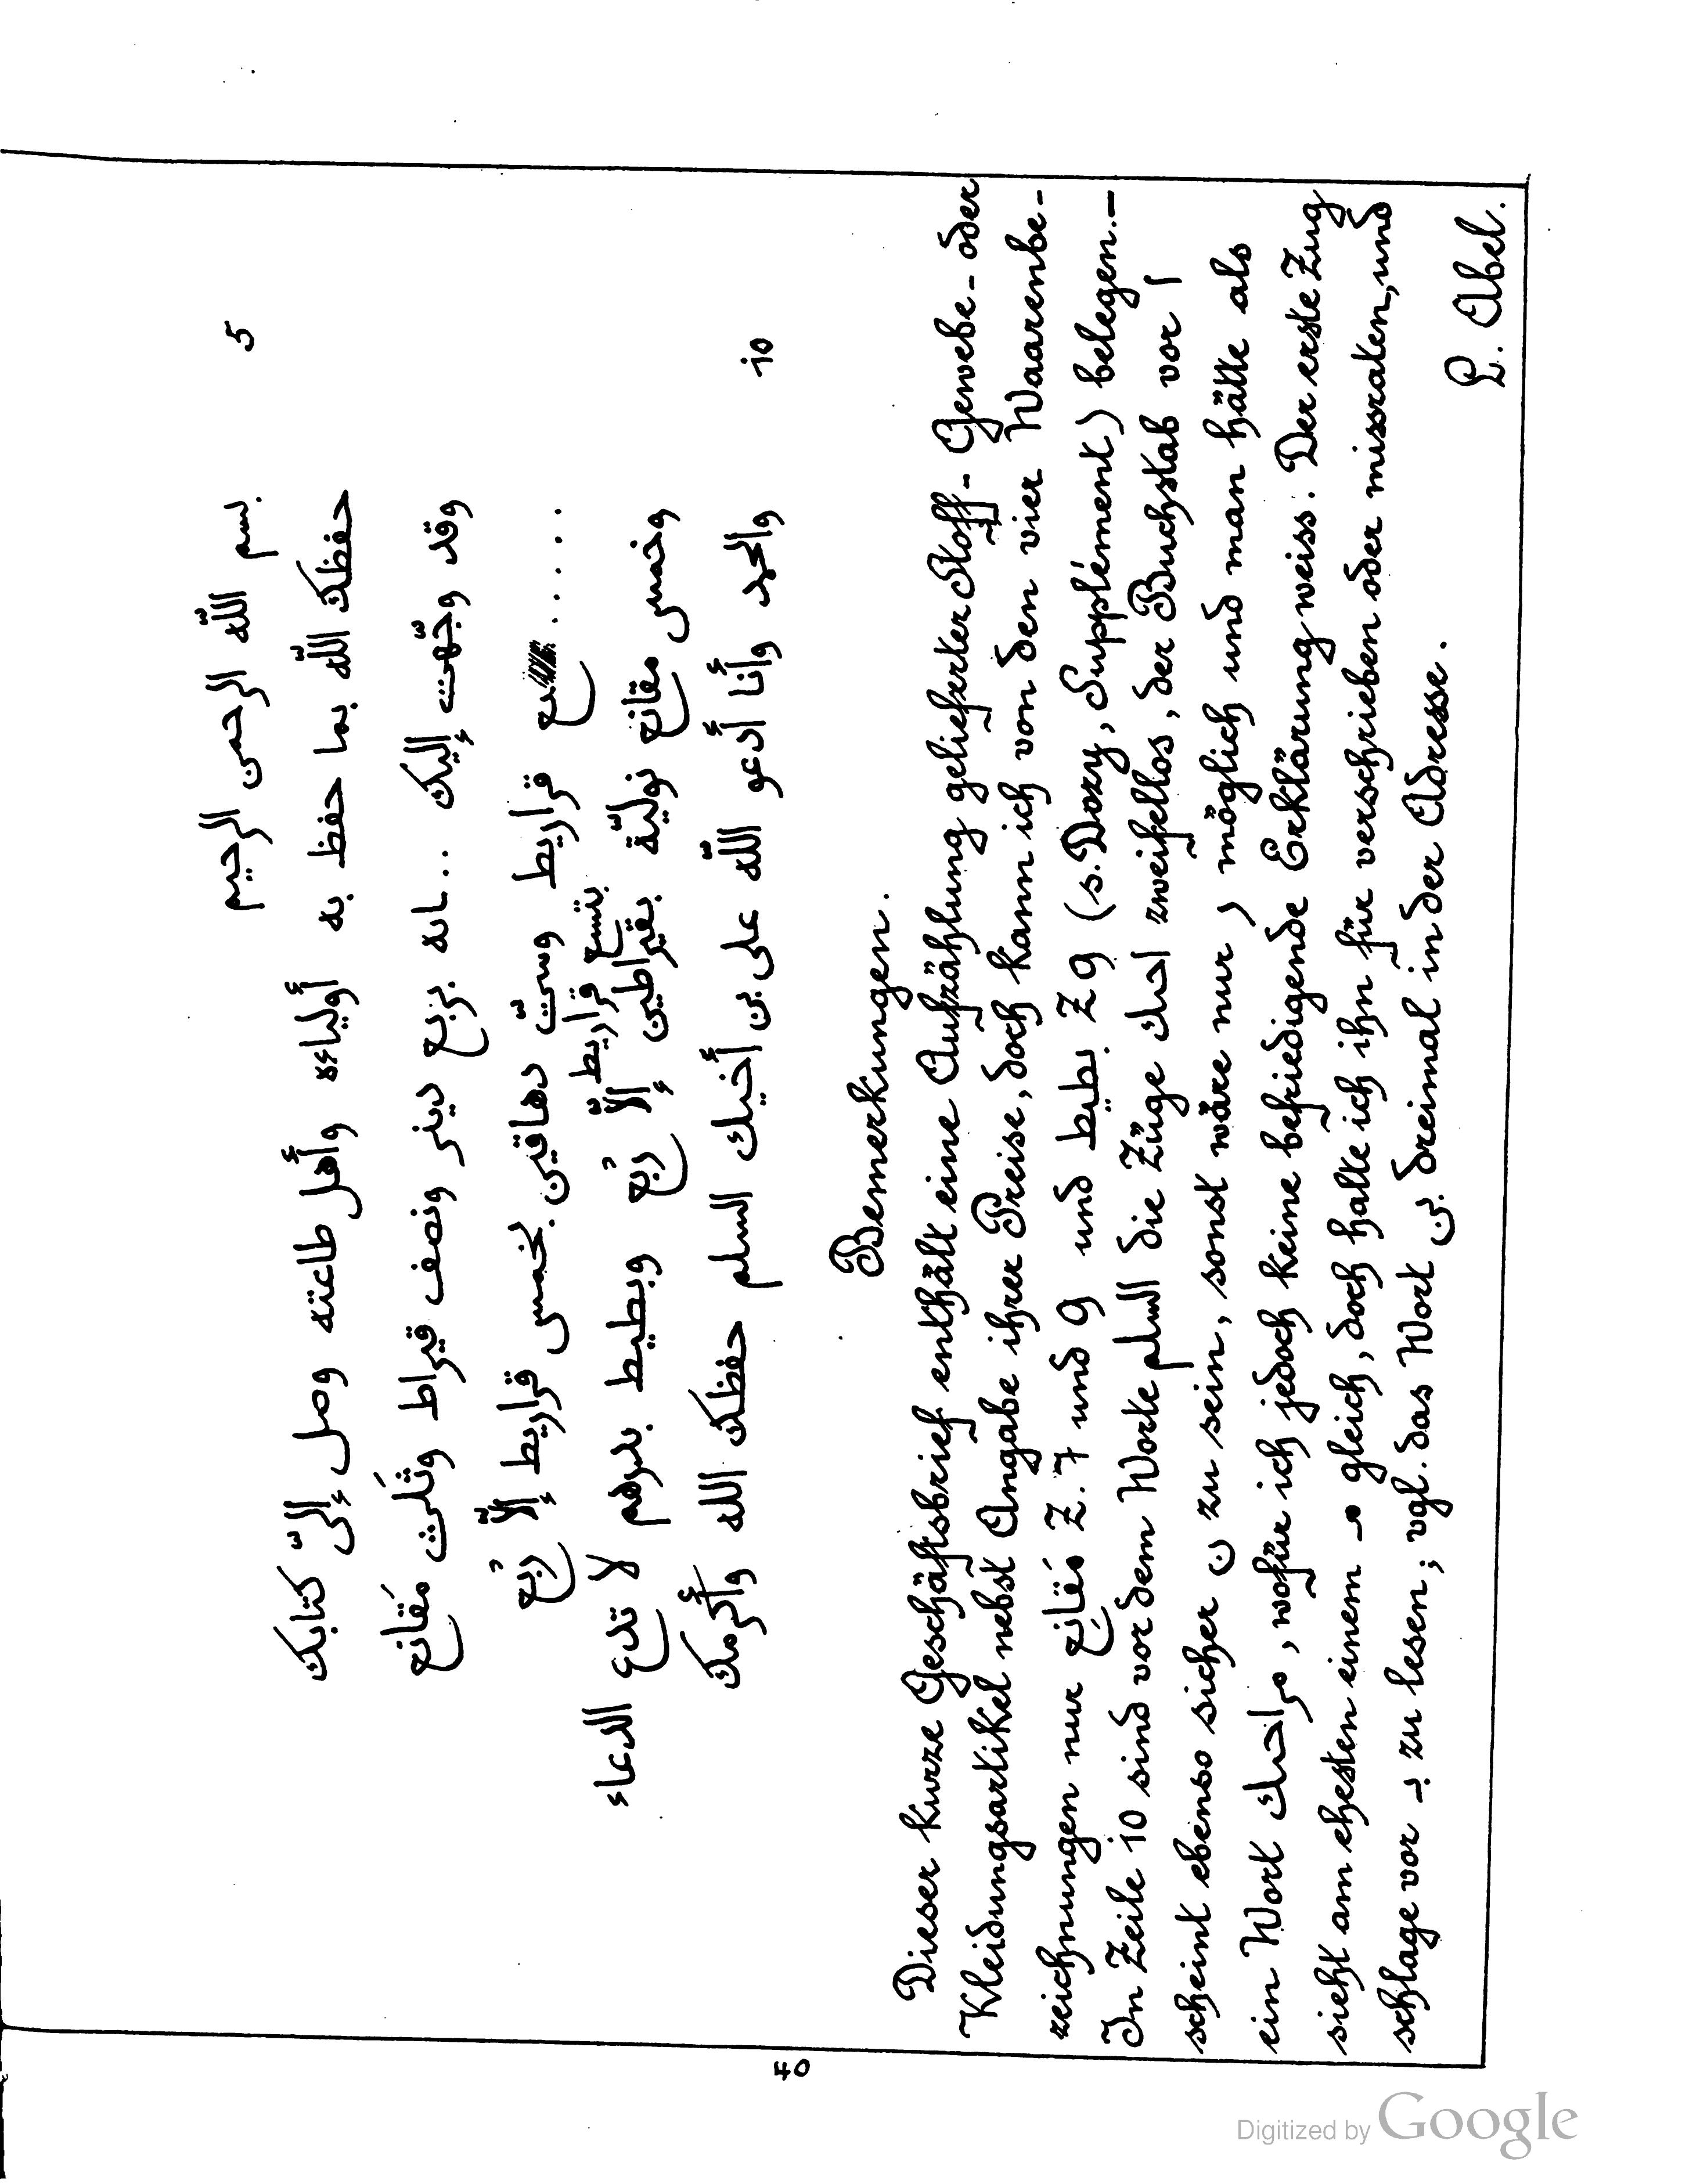 بسم اللّه الرحمن الرحيم 5
حفظك اللّه بما حفظ به أولياءه وأهل طاعته وصل إلىّ كتابك
وقد وجّهت إليك ..ـانه بربع دينر ونصف قيراط وثلث مَقانع
..... ـع قراريط وستّ دهاقين بخمس قراريط إلّا رُبْع
بتسع قراريط
وخمس مقانع نوليّة بقيراطين إلّا رُبْع وبطيط بدرهم لا تدع الدعاء
والحمد وأنا أدعو اللّه على بن أخيك السلم حفظك الله وأكرمك 10
Bemerkungen.
Dieser kurze Geschäftsbrief enthält eine Aufzählung gelieferter Stoff- Gewebe- oder
Kleidungsartikel nebst Angabe ihrer Preise, doch kann ich von den vier Waarenbe-
zeichnungen nur مَقانع Z. 7 und 9 und بطيط Z 9 (s. Dozy, Supplément) belegen.—
In Zeile 10 sind vor dem Worte السلم die Züge احىك zweifellos, der Buchstab vor ا
scheint ebenso sicher ن zu sein, sonst wäre nur ر möglich und man hätte als
ein Wort مراحىك, wofür ich jedoch keine befriedigende Erklärung weiss. Der erste Zug
sieht am ehesten einem مـ gleich, doch halte ich ihn für verschrieben oder missraten, und
schlage vor بـ zu lesen; vgl. das Wort بن dreimal in der Adresse.
L. Abel.
40
Digitized by Google